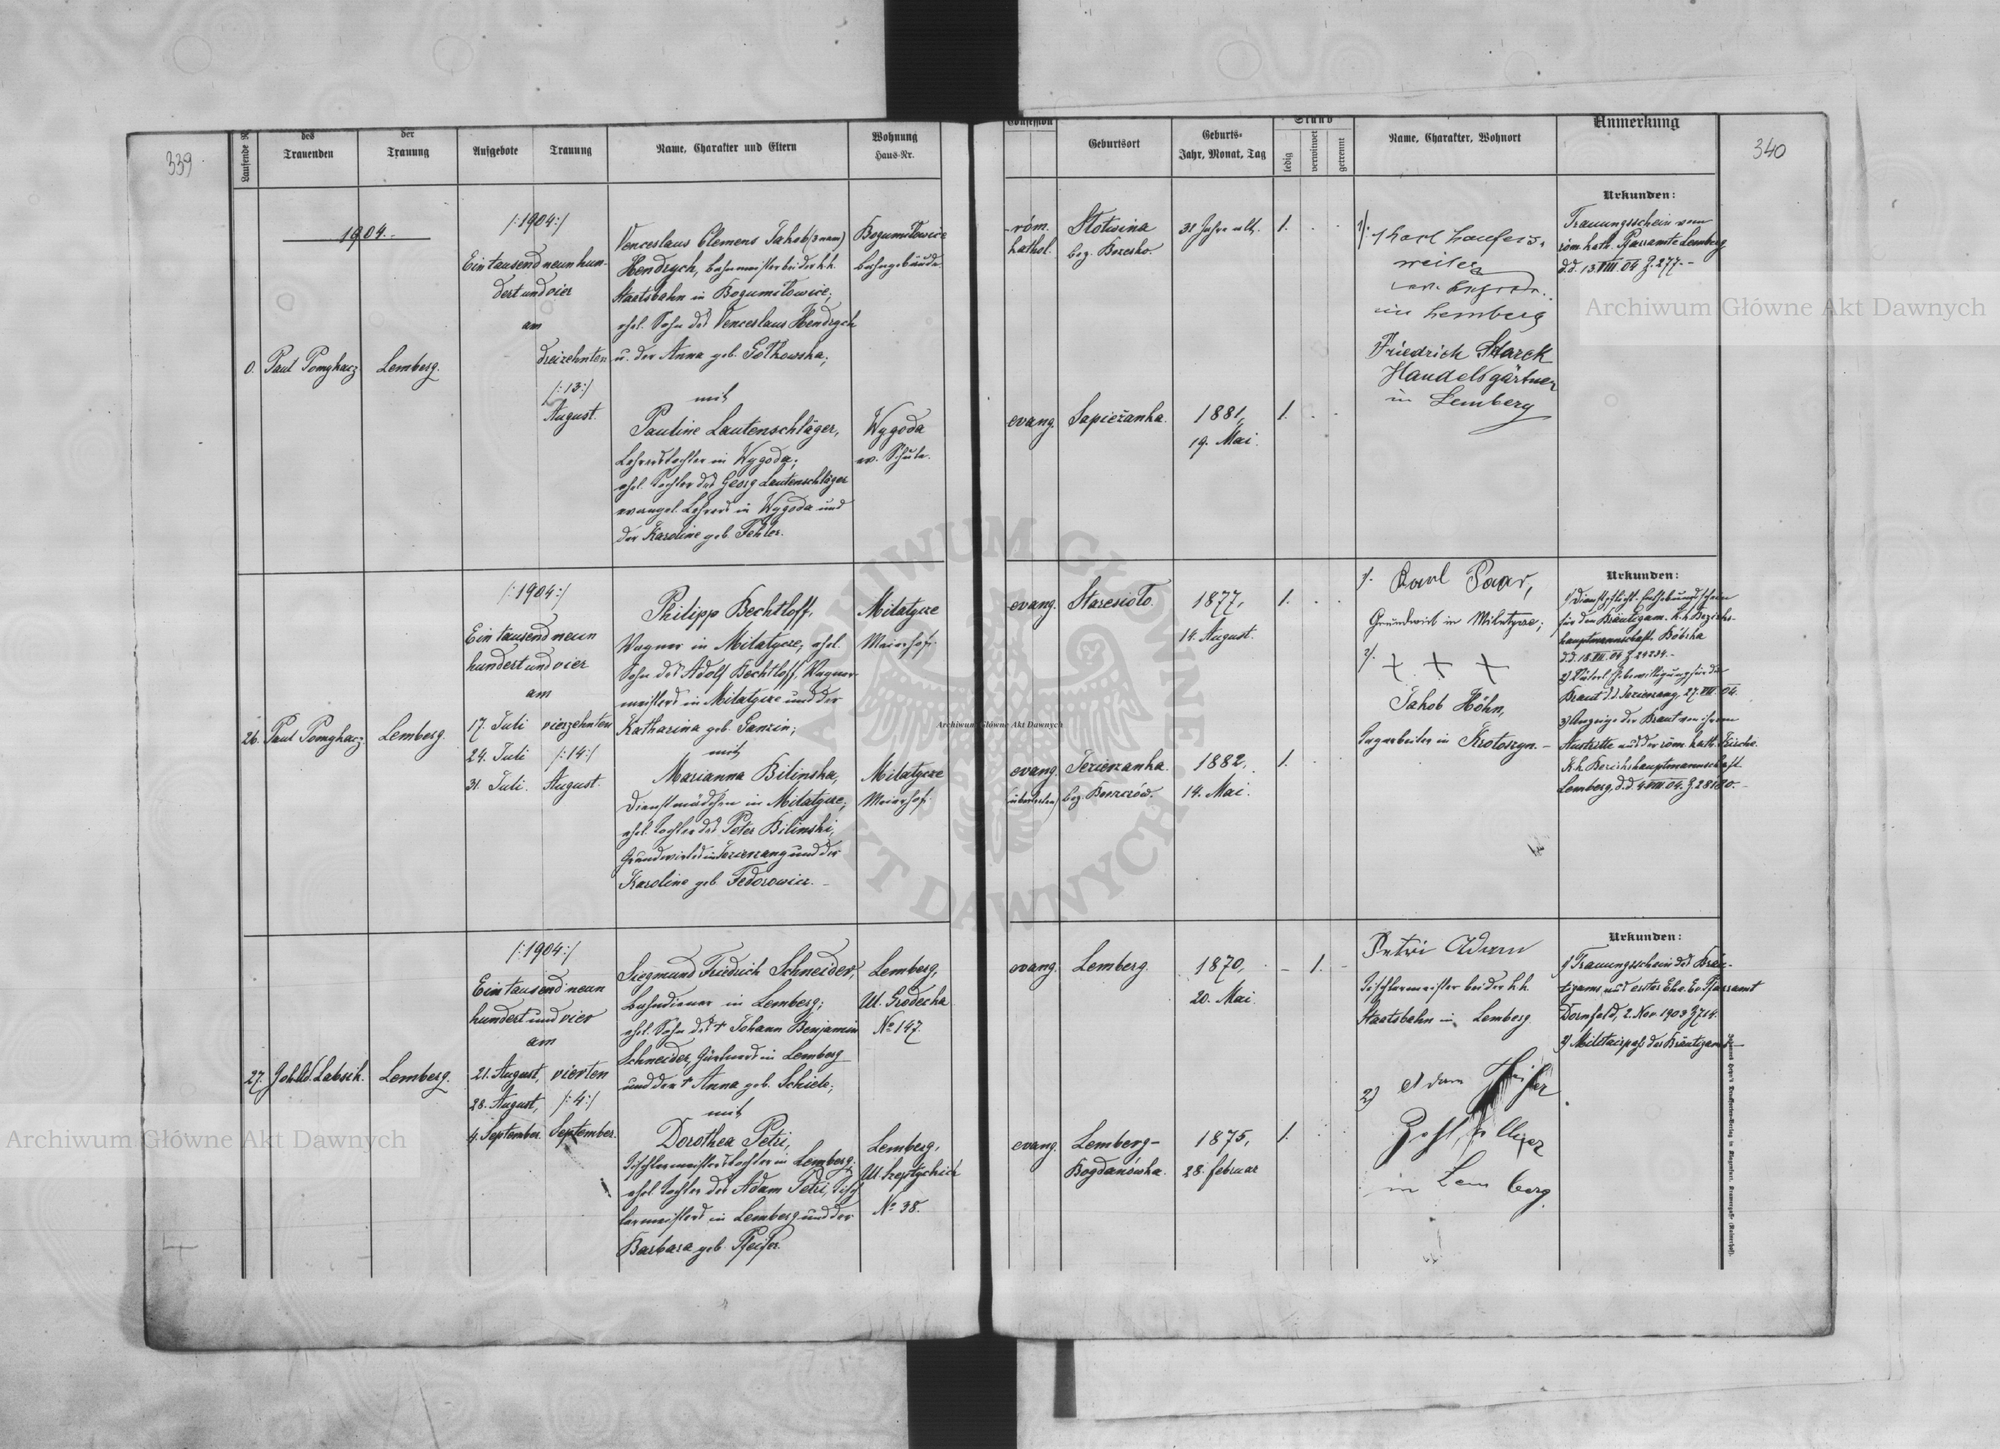 339
340
Laufende
des
Trauenden
der
Trauung
Aufgebote
Trauung
Name, Charakter und Eltern
Wohnung
Haus-Nr.
Confession
Geburtsort
Geburts-
Jahr, Monat, Tag
Stand
ledig
verwitwet
getrennt
Name, Charakter, Wohnort
Anmerkung
1904.
0.
Paul Pomykacz
Lemberg.
/:1904:/
Ein tausend neun hun-
dert und vier
am
dreizehnten
/:13:/
August.
Venceslaus Clemens Jakob (3 nam)
Hendrych, Bahnmeister bei der k.k.
Staatsbahn in Bogumilowice,
ehel. Sohn des Venceslaus Hendrych
u. der Anna geb. Gotkowska,
mit
Pauline Lautenschläger,
Lehrerstochter in Wygoda,
ehel. Tochter des Georg Lautenschläger
evangel. Lehrers in Wygoda und
der Karoline geb. Fehler.
Bogumilowice
Bahngebäude
Wygoda
ev. Schule.
röm.
kathol.
Slotwina
bez. Brzesko.
31 Jahre alt.
1.
evang.
Sapiezanka.
1881,
19. Mai.
1.
1/.
Karl Laufers-
weiler
in Lemberg
Friedrich Starck
Handelsgärtner
in Lemberg
Urkunden:
Trauungsschein vom
röm. kath. Pfarramte Lemberg
d.d. 13.VIII.04 Z. 277.-
26.
Paul Pomykacz
Lemberg.
/:1904:/
Ein tausend neun
hundert und vier
am
17. Juli
24. Juli
31. Juli.
vierzehnten
/:14:/
August.
Philipp Bechtloff,
Wagner in Milatycze, ehel.
Sohn des Adolf Bechtloff, Wagner-
meisters in Milatycze und der
Katharina geb. Ganzin;
mit
Marianna Bilinska,
Dienstmädchen in Milatycze,
ehel. Tochter des Peter Bilinski,
Grundwirtes in Jezierzany und der
Karoline geb. Fedorowicz.
Milatycze
Meierhof.
Milatycze
Meierhof.
evang.
Staresiolo.
1877,
14. August.
1.
evang.
(übertreten)
Jezierzanka
bez. Borszczów.
1882,
14. Mai.
1.
1/.
Karl Paar,
Grundwirt in Milatycze;
2/.
+ + +
Jakob Höhn,
Tagarbeiter in Krotoszyn.
Urkunden:
für den Bräutigam. K.k. Bezirks-
hauptmannschaft Bóbrka
Braut d.d. Jezierzany, 27.VII.04.
3) Anzeige der Braut von ihrem
Austritte aus der röm. kath. Kirche.
K.k. Bezirkshauptmannschaft
Lemberg, d.d. 4.VIII.04. Z. 28180.-
27.
Lemberg.
/:1904:/
Ein tausend neun
hundert und vier
am
21. August,
28. August,
4. September.
vierten
/:4:/
September.
Siegmund Friedrich Schneider,
Bahndiener in Lemberg;
ehel. Sohn des + Johann Benjamin
Schneider, Gärtners in Lemberg
und der + Anna geb. Schiele;
mit
Dorothea Petri,
Tischlermeisterstochter in Lemberg,
ehel. Tochter des Adam Petri, Tisch-
lermeisters in Lemberg und der
Barbara geb. Pfeifer.
Lemberg,
Ul. Grodecka
No 147.
Lemberg,
Ul. Szeptyckich
No 38.
evang.
Lemberg.
1870,
20. Mai.
1.
evang.
Lemberg-
Bogdanówka.
1875,
28. Februar
1.
Petri Adam
Tischlermeister bei der k.k.
Staatsbahn in Lemberg.
2)
Adam
in Lemberg.
Urkunden:
1) Trauungsschein des Bräu-
tigams aus erster Ehe. Ev. Pfarramt
Dornfeld, 2. Nov. 1903 Z 714.
2) Militärpaß des Bräutigams.
Archiwum Główne Akt Dawnych
Archiwum Główne Akt Dawnych
Archiwum Główne Akt Dawnych
ARCHIWUM GŁÓWNE AKT DAWNYCH